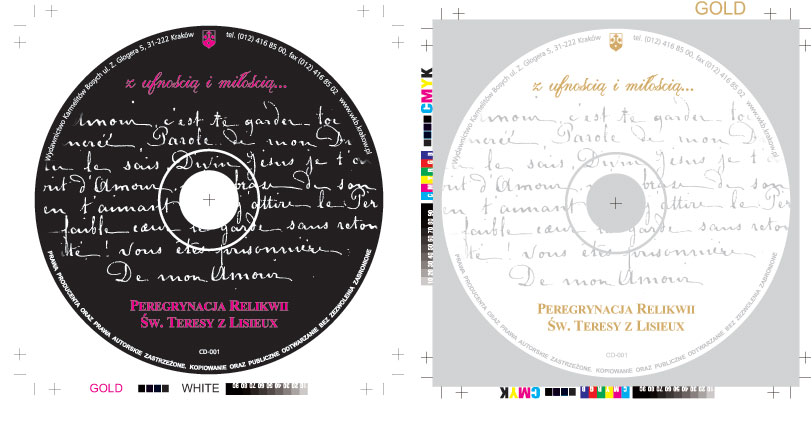 GOLD
Wydawnictwo Karmelitów Bosych ul. Z. Glogera 5, 31-222 Kraków tel. (012) 416 85 00, fax (012) 416 85 02 www.wkb.krakow.pl
z ufnością i miłością...
c'est te garder
Parole de mon
le sais Divin Jesus je t'a
d'Amour de son
en t'aimant attire le
faible cœur garde sans retou
te! vous êtes prisonnière
De mon Amour
PEREGRYNACJA RELIKWII
ŚW. TERESY Z LISIEUX
CD-001
PRAWA PRODUCENTA ORAZ PRAWA AUTORSKIE ZASTRZEŻONE, KOPIOWANIE ORAZ PUBLICZNE ODTWARZANIE BEZ ZEZWOLENIA ZABRONIONE
GOLD WHITE
CMYK
Wydawnictwo Karmelitów Bosych ul. Z. Glogera 5, 31-222 Kraków tel. (012) 416 85 00, fax (012) 416 85 02 www.wkb.krakow.pl
z ufnością i miłością...
c'est te garder
Parole de mon
le sais Divin Jesus je t'a
d'Amour de son
en t'aimant attire le
faible cœur garde sans retou
te! vous êtes prisonnière
De mon Amour
PEREGRYNACJA RELIKWII
ŚW. TERESY Z LISIEUX
CD-001
PRAWA PRODUCENTA ORAZ PRAWA AUTORSKIE ZASTRZEŻONE, KOPIOWANIE ORAZ PUBLICZNE ODTWARZANIE BEZ ZEZWOLENIA ZABRONIONE
CMYK